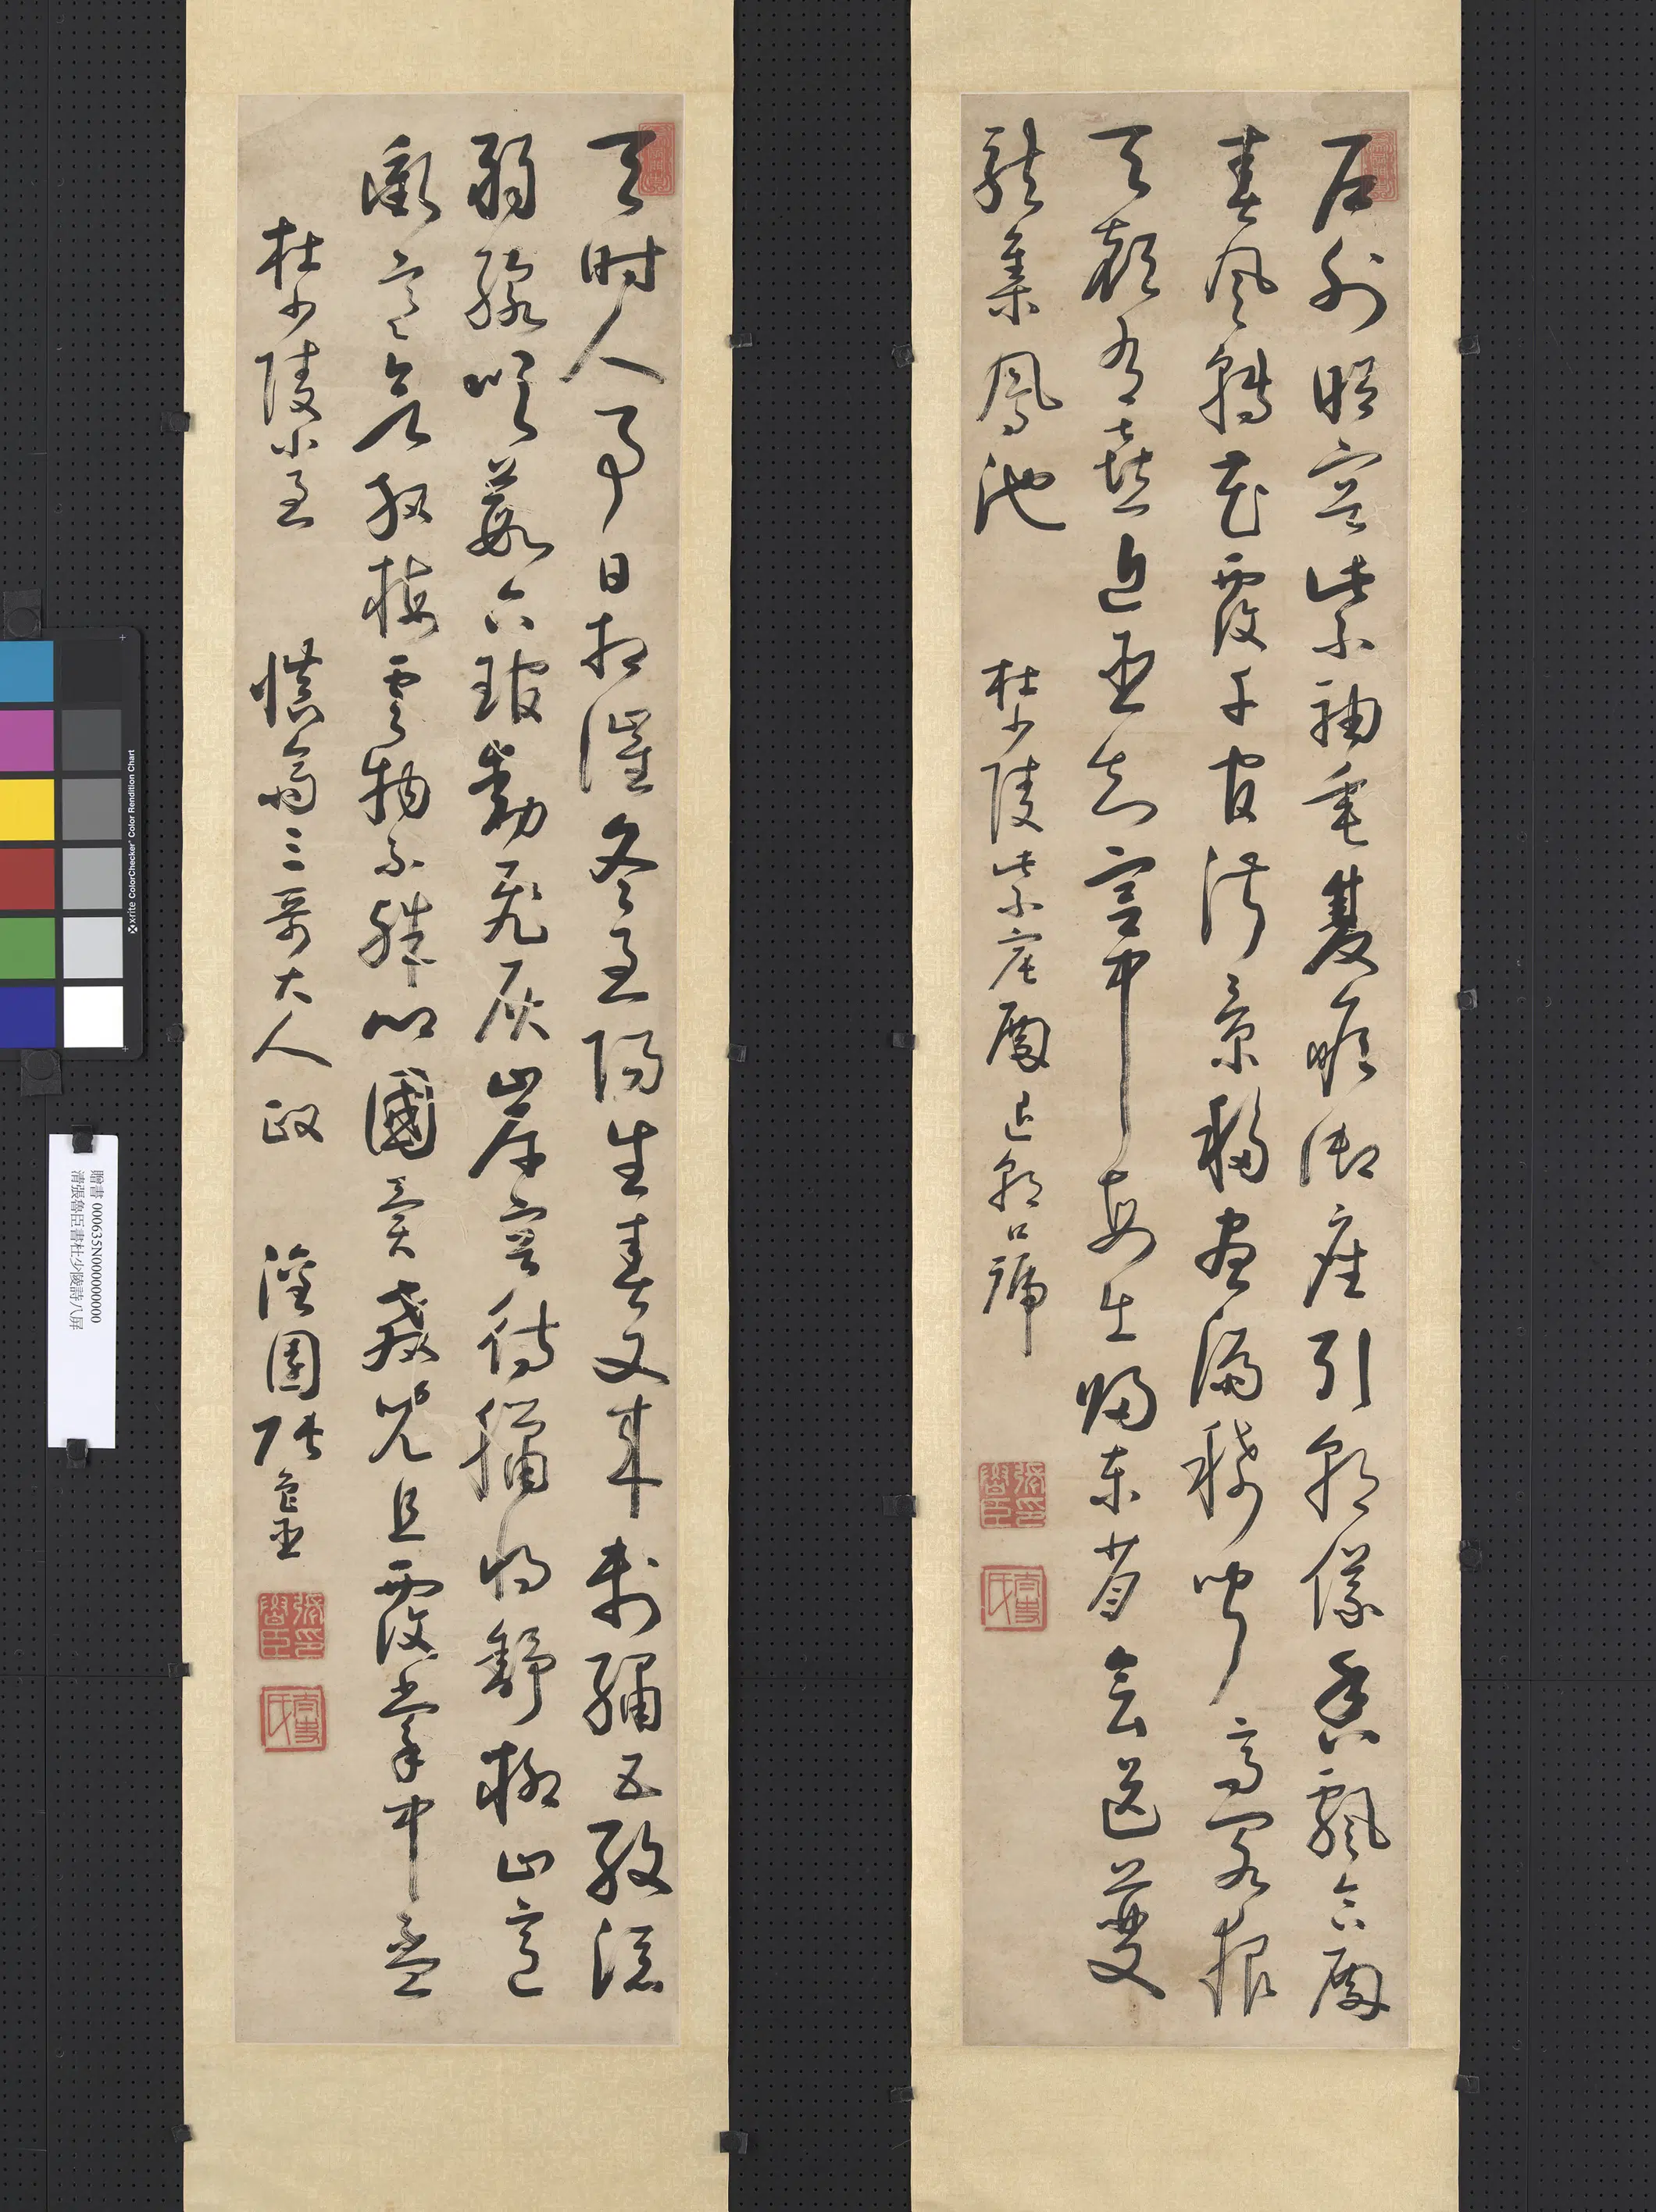 戶外昭容紫袖垂雙瞻御座引朝儀香飄合殿
春風轉花覆千官淑景移晝漏稀聞高閣報
天顏有喜近臣知宮中每出歸東省會送夔
龍集鳳池 杜少陵紫宸殿退朝口號
張印魯臣
天時人事日相催冬至陽生春又來刺繡五紋添
弱線吹葭六琯動飛灰岸容待臘將舒柳山意
衝寒欲放梅雲物不殊鄉國異教兒且覆掌中盃
杜少陵小至 慎翁三哥大人 政 園張魯臣
張印魯臣
贈書 000635N000000000
清張魯臣書杜少陵詩八屏
xrite ColorChecker Color Rendition Chart